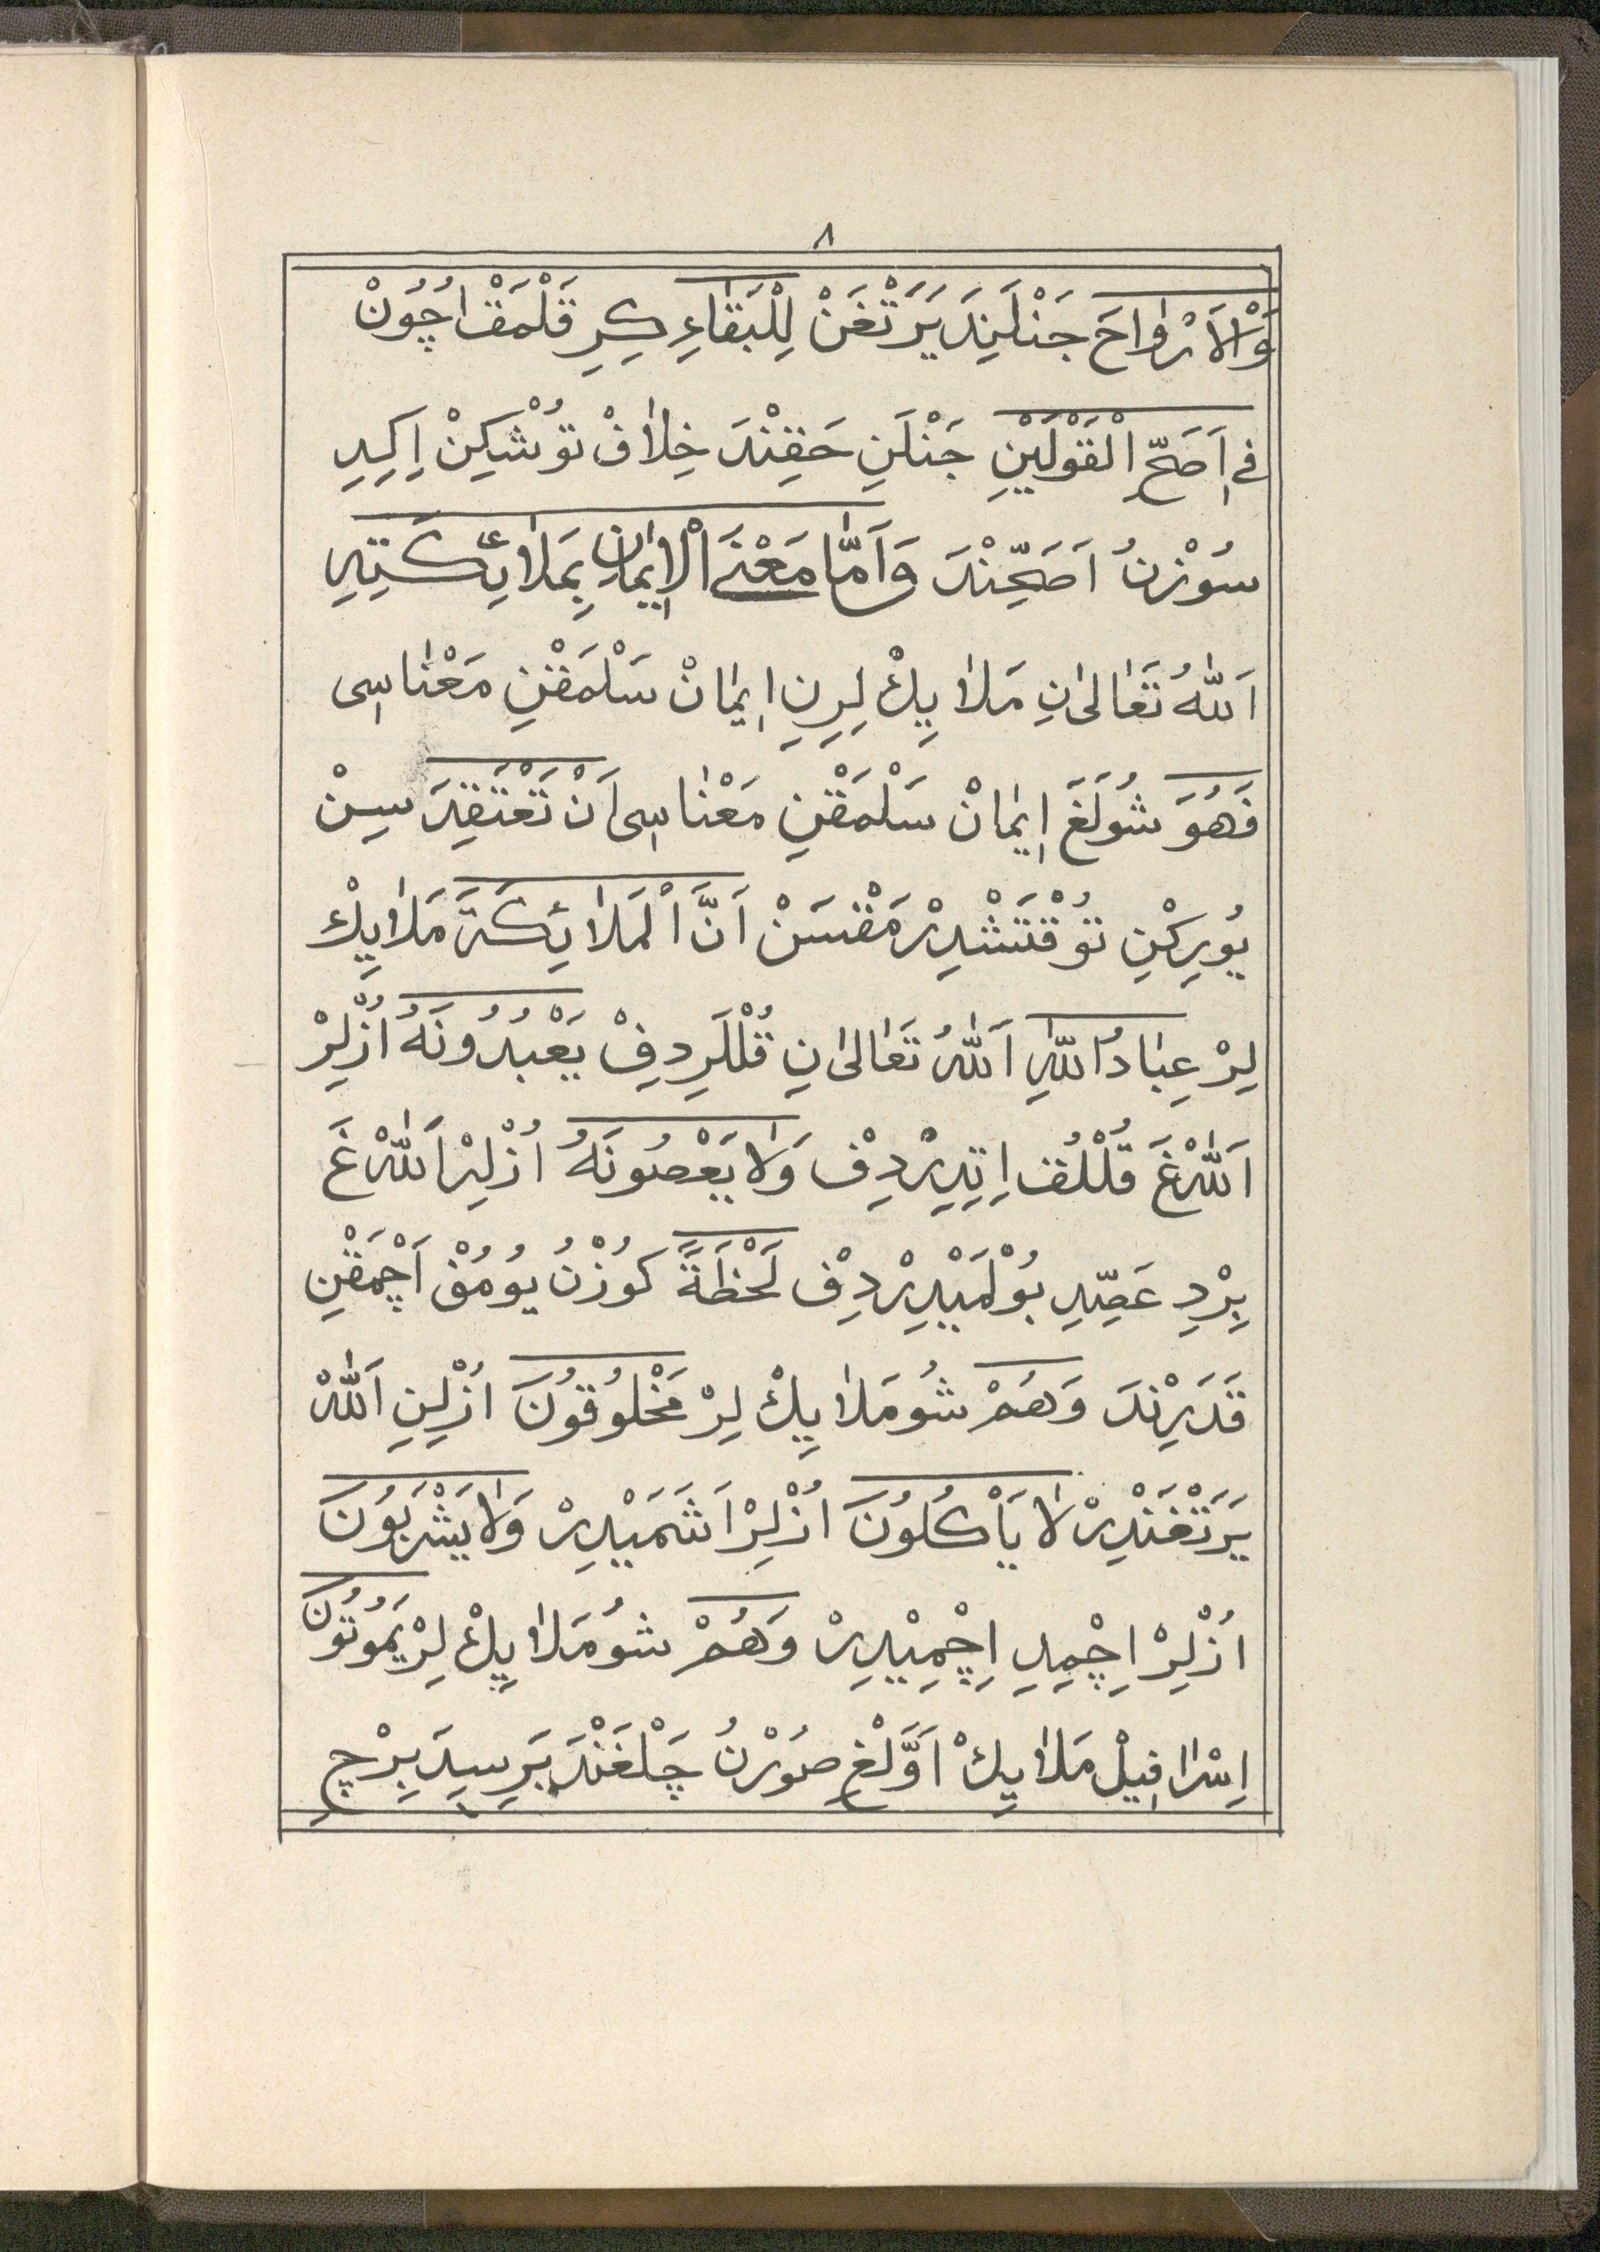 ٨
وَالْاَرْوٰاحَ جَنْلَيِنَدَ يَرَتْغَنْ لِلْبَقٰاءِ كِرِ قَلْمَقْ اُچُوُنْ
فِے اَصَحِّ الْقَوْلَيْنِ جَنْلَنِ حَقِنْدَ خِلٰافْ تُوْشْكِنْ اِكِدِ
سُوْزْنُ اَصَحِّنْدَ وَاَمَّا مَعْنَے الْاِيْمٰانِ بِمَلٰائِكَتِهِ
اَللّٰهُ تَعٰالىٰ نِ مَلٰايِكْ لِرِنِ اِيمٰانْ سَلْمَقْنِ مَعْنٰاسِى
فَهُوَ شُولَغَ اِيمٰانْ سَلْمَقْنِ مَعْنٰاسِى اَنْ تَعْتَقِدَ سِنْ
يُورِكْنِ تُوْقْتَشْدِرْمَقْسَنْ اَنَّ الْمَلٰائِكَةَ مَلٰايِكْ
لِرْ عِبٰادُ اللّٰهِ اَللّٰهُ تَعٰالىٰ نِ قُلْلَرِدِفْ يَعْبُدُونَهُ اُزْلِرْ
اَللّٰهْغَ قُلْلُقْ اِتِدِرْدِفْ وَلٰا يَعْصُونَهُ اُزْلِرْ اَللّٰهْ غَ
بِرْدِ عَصِّدِ بُوْلْمَيْدِرْدِفْ لَحْظَةً كُوزْنُ يُومُقْ اَچْمَقْنِ
قَدَرِنْدَ وَهُمْ شُومَلٰايِكْ لِرْ مَخْلُوُقُونَ اُزْلِنِ اَللّٰهْ
يَرَتْغَنْدِرْ لٰا يَاْكُلُوُنَ اُزْلِرْ اَشَمَيْدِرْ وَلٰا يَشْرَبُوُنَ
اُزْلِرْ اِچْمِدِ اِچْمِيْدِرْ وَهُمْ شُومَلٰايِكْ لِرْ يَمُوُتُوُنَ
اِسْرٰافِيلْ مَلٰايِكْ اَوَّلْغِ صُوْرْنُ چَلْغَنْدَ بَرِسِدَ بِرْچِ